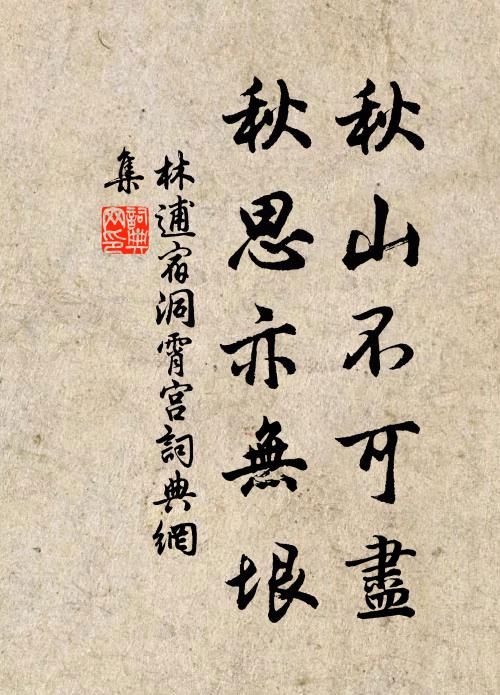 秋山不可盡
秋思亦無垠
林逋宿洞霄宮詞典網
集
詞典
网印